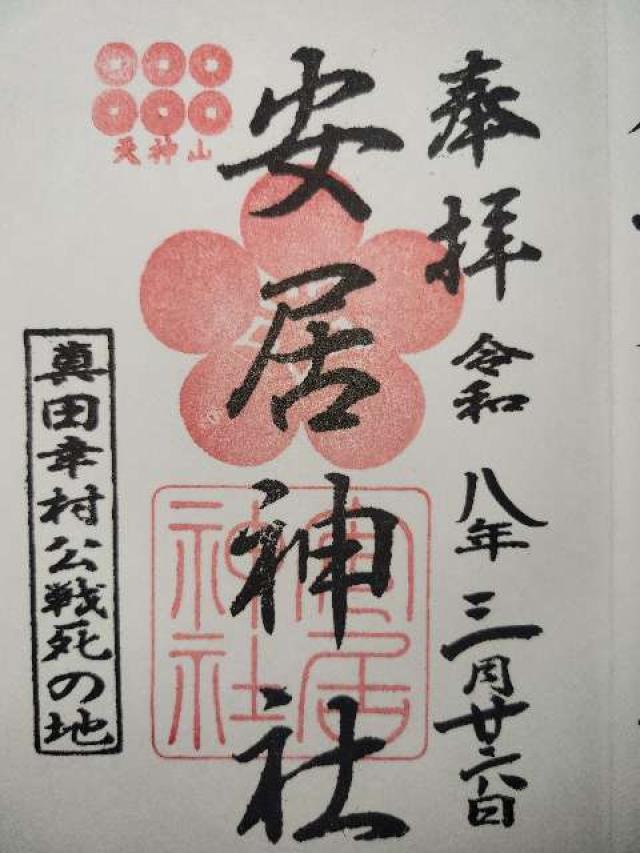 奉拝 令和 八年 三月廿六日
安居神社
天神山
安居
神社
真田幸村公戦死の地